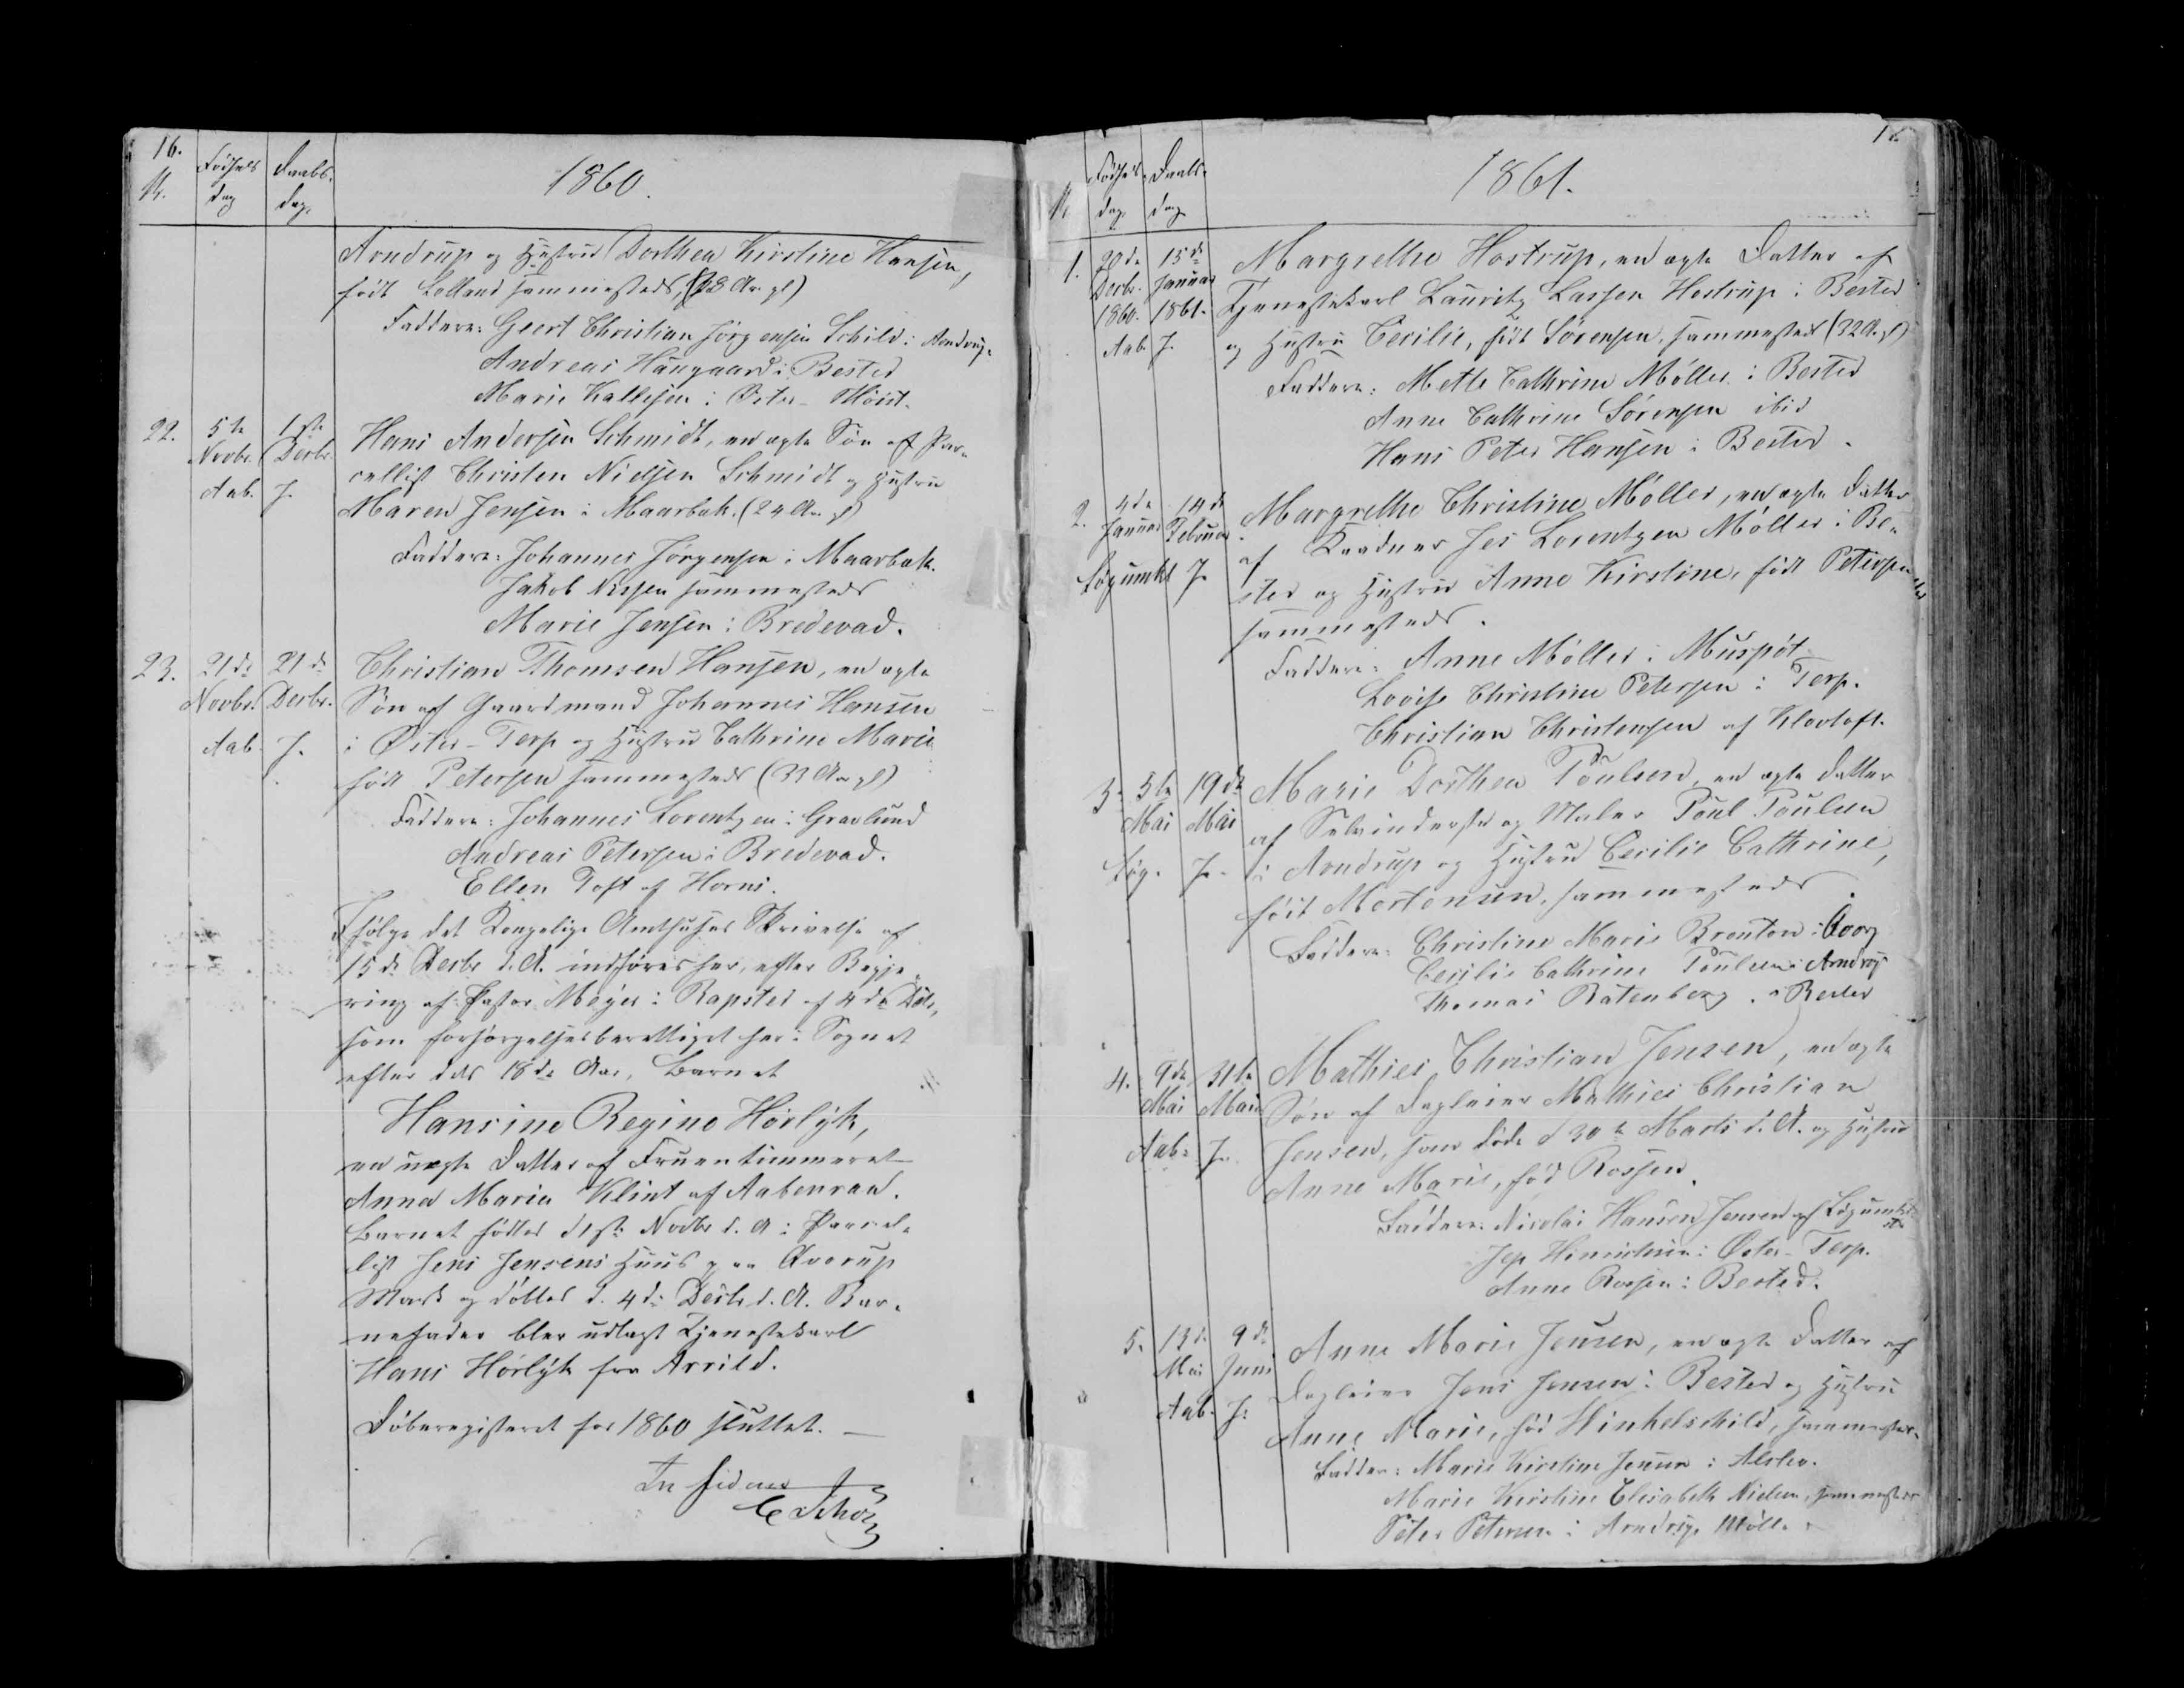 16.
Nr.
Födsels
dag
Daabs
dag.
1860.
Arndrup og Hustru Dorthea Kirstine Hansen,
födt Lolland sammesteds, (28 Aar gl)
Faddere: Geert Christian Jörgensen Schild i Arndrup.
Andreas Haugaard i Bested
Marie Kallesen i Öster-Höist.
22. 5te Novbr. 1ste Decbr. Aab. J.
Hans Andersen Schmidt, en ægte Sön af Par-
cellist Christen Nielsen Schmidt og Hustru
Maren Jensen i Maarbæk. (24 Aar gl)
Faddere: Johannes Jörgensen i Maarbæk.
Jakob Nissen sammesteds
Marie Jensen i Bredevad.
23. 21de Novbr. 21de Decbr. Aab. J.
Christian Thomsen Hansen, en ægte
Sön af Gaardmand Johannes Hansen
i Öster-Terp og Hustru Cathrine Marie
födt Petersen sammesteds (33 Aar gl)
Faddere: Johannes Lorentzen i Gravlund
Andreas Petersen i Bredevad.
Ellen Toft af Horns.
Ifölge det Kongelige Amthuses Skrivelse af
15de Decbr d. A. indföres her, efter Begje-
ring af Pastor Meyer i Rapsted af 4de
som forsörgelsesberettiget her i Sognet
efter dets 18de Aar, Barnet
Hansine Regine Hörlÿk,
en uægte Datter af Fruentimmeret
Anna Maria Klint af Aabenraa.
Barnet födtes d 1ste Novbr d. A. i Parcel-
list Jens Jensens Huus paa Avorup
Mark og döbtes d. 4de Decbr d. A. Bar-
nefader blev udlagt Tjenestekarl
Hans Hörlÿk fra Arrild.
Döberegisteret for 1860 sluttet. —
In fidem
C Schöz
1861.
Nr.
Födsels
dag.
Daabs
dag
1. 20de Decbr. 1860. 15de Januar 1861. Aab. J.
Margrethe Hostrup, en ægte Datter af
Tjenestekarl Lauritz Lassen Hostrup i Bested
og Hustru Cecilie, födt Sörensen, sammesteds (32 A. gl)
Faddere: Mette Cathrine Möller i Bested
Anne Cathrine Sörensen ibid
Hans Peter Hansen i Bested.
2. 4de Januar 14de Februar Lögumkl J.
Margrethe Christine Möller, en ægte Datter
af Kaadner Jes Lorentzen Möller i Be-
sted og Hustru Anne Kirstine, födt Petersen
sammesteds.
Faddere: Anne Möller i Muspöt
Lovise Christine Petersen i Terp.
Christian Christensen af Klovtoft.
3. 5te Mai 19de Mai Lög. J.
Marie Dorthea Poulsen, en ægte Datter
af Selvinderste og Maler Poul Poulsen
i Arndrup og Hustru Cecilie Cathrine,
födt Mortensen, sammesteds.
Faddere: Christine Marie Brenton i
Cecilie Cathrine Poulsen i Arndrup
Thomas Ratenberg i Bested
4. 9de Mai 31te Mai Aab. J.
Mathies Christian Jensen, en ægte
Sön af Dagleier Mathies Christian
Jensen, som döde d 30te Marts d. A. og Hustru
Anne Marie, född Rossen.
Faddere: Nicolai Hansen Jensen af Lögumkl
Jep Hinrichsen i Öster-Terp.
Anne Rossen i Bested.
5. 13de Mai 9de Juni Aab. J.
Anne Marie Jensen, en ægte Datter af
Dagleier Jens Jensen i Bested og Hustru
Anne Marie, född Winkelschild, sammesteds.
Faddere: Marie Kirstine Jensen i Alslev.
Marie Kirstine Elisabeth Nielsen, sammesteds
Peter Petersen i Arndrup Mölle.